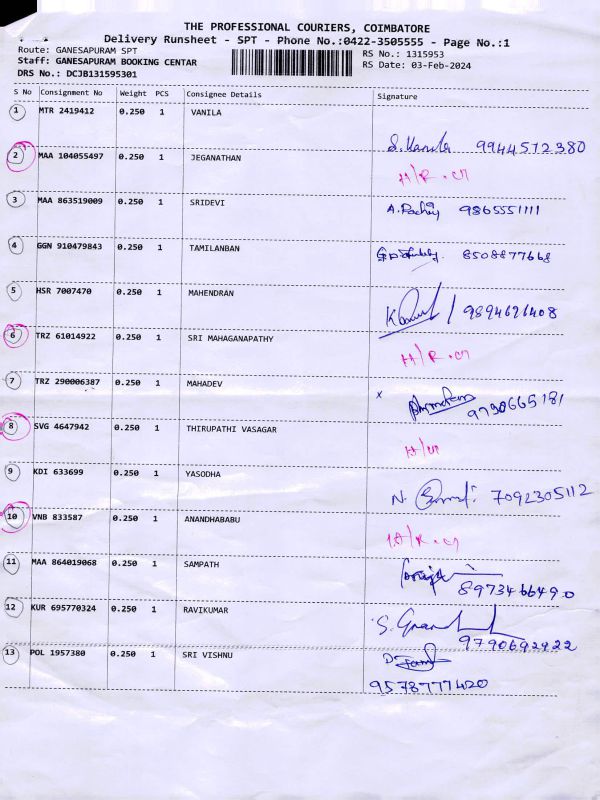 THE PROFESSIONAL COURIERS, COIMBATORE
Delivery Runsheet - SPT - Phone No.:0422-3505555 - Page No.:1
Route: GANESAPURAM SPT
RS No.: 1315953
Staff: GANESAPURAM BOOKING CENTAR
RS Date: 03-Feb-2024
DRS No.: DCJB131595301
S No Consignment No Weight PCS Consignee Details Signature
1 MTR 2419412 0.250 1 VANILA
9944572380
2 MAA 104055497 0.250 1 JEGANATHAN
3 MAA 863519009 0.250 1 SRIDEVI 9865551111
4 GGN 910479843 0.250 1 TAMILANBAN 8508877668
5 HSR 7007470 0.250 1 MAHENDRAN
9894626408
6 TRZ 61014922 0.250 1 SRI MAHAGANAPATHY
7 TRZ 290006387 0.250 1 MAHADEV
9790665181
8 SVG 4647942 0.250 1 THIRUPATHI VASAGAR
9 KDI 633699 0.250 1 YASODHA
7092305112
10 VNB 833587 0.250 1 ANANDHABABU
11 MAA 864019068 0.250 1 SAMPATH
8973466490
12 KUR 695770324 0.250 1 RAVIKUMAR
9790692922
13 POL 1957380 0.250 1 SRI VISHNU
9578777420